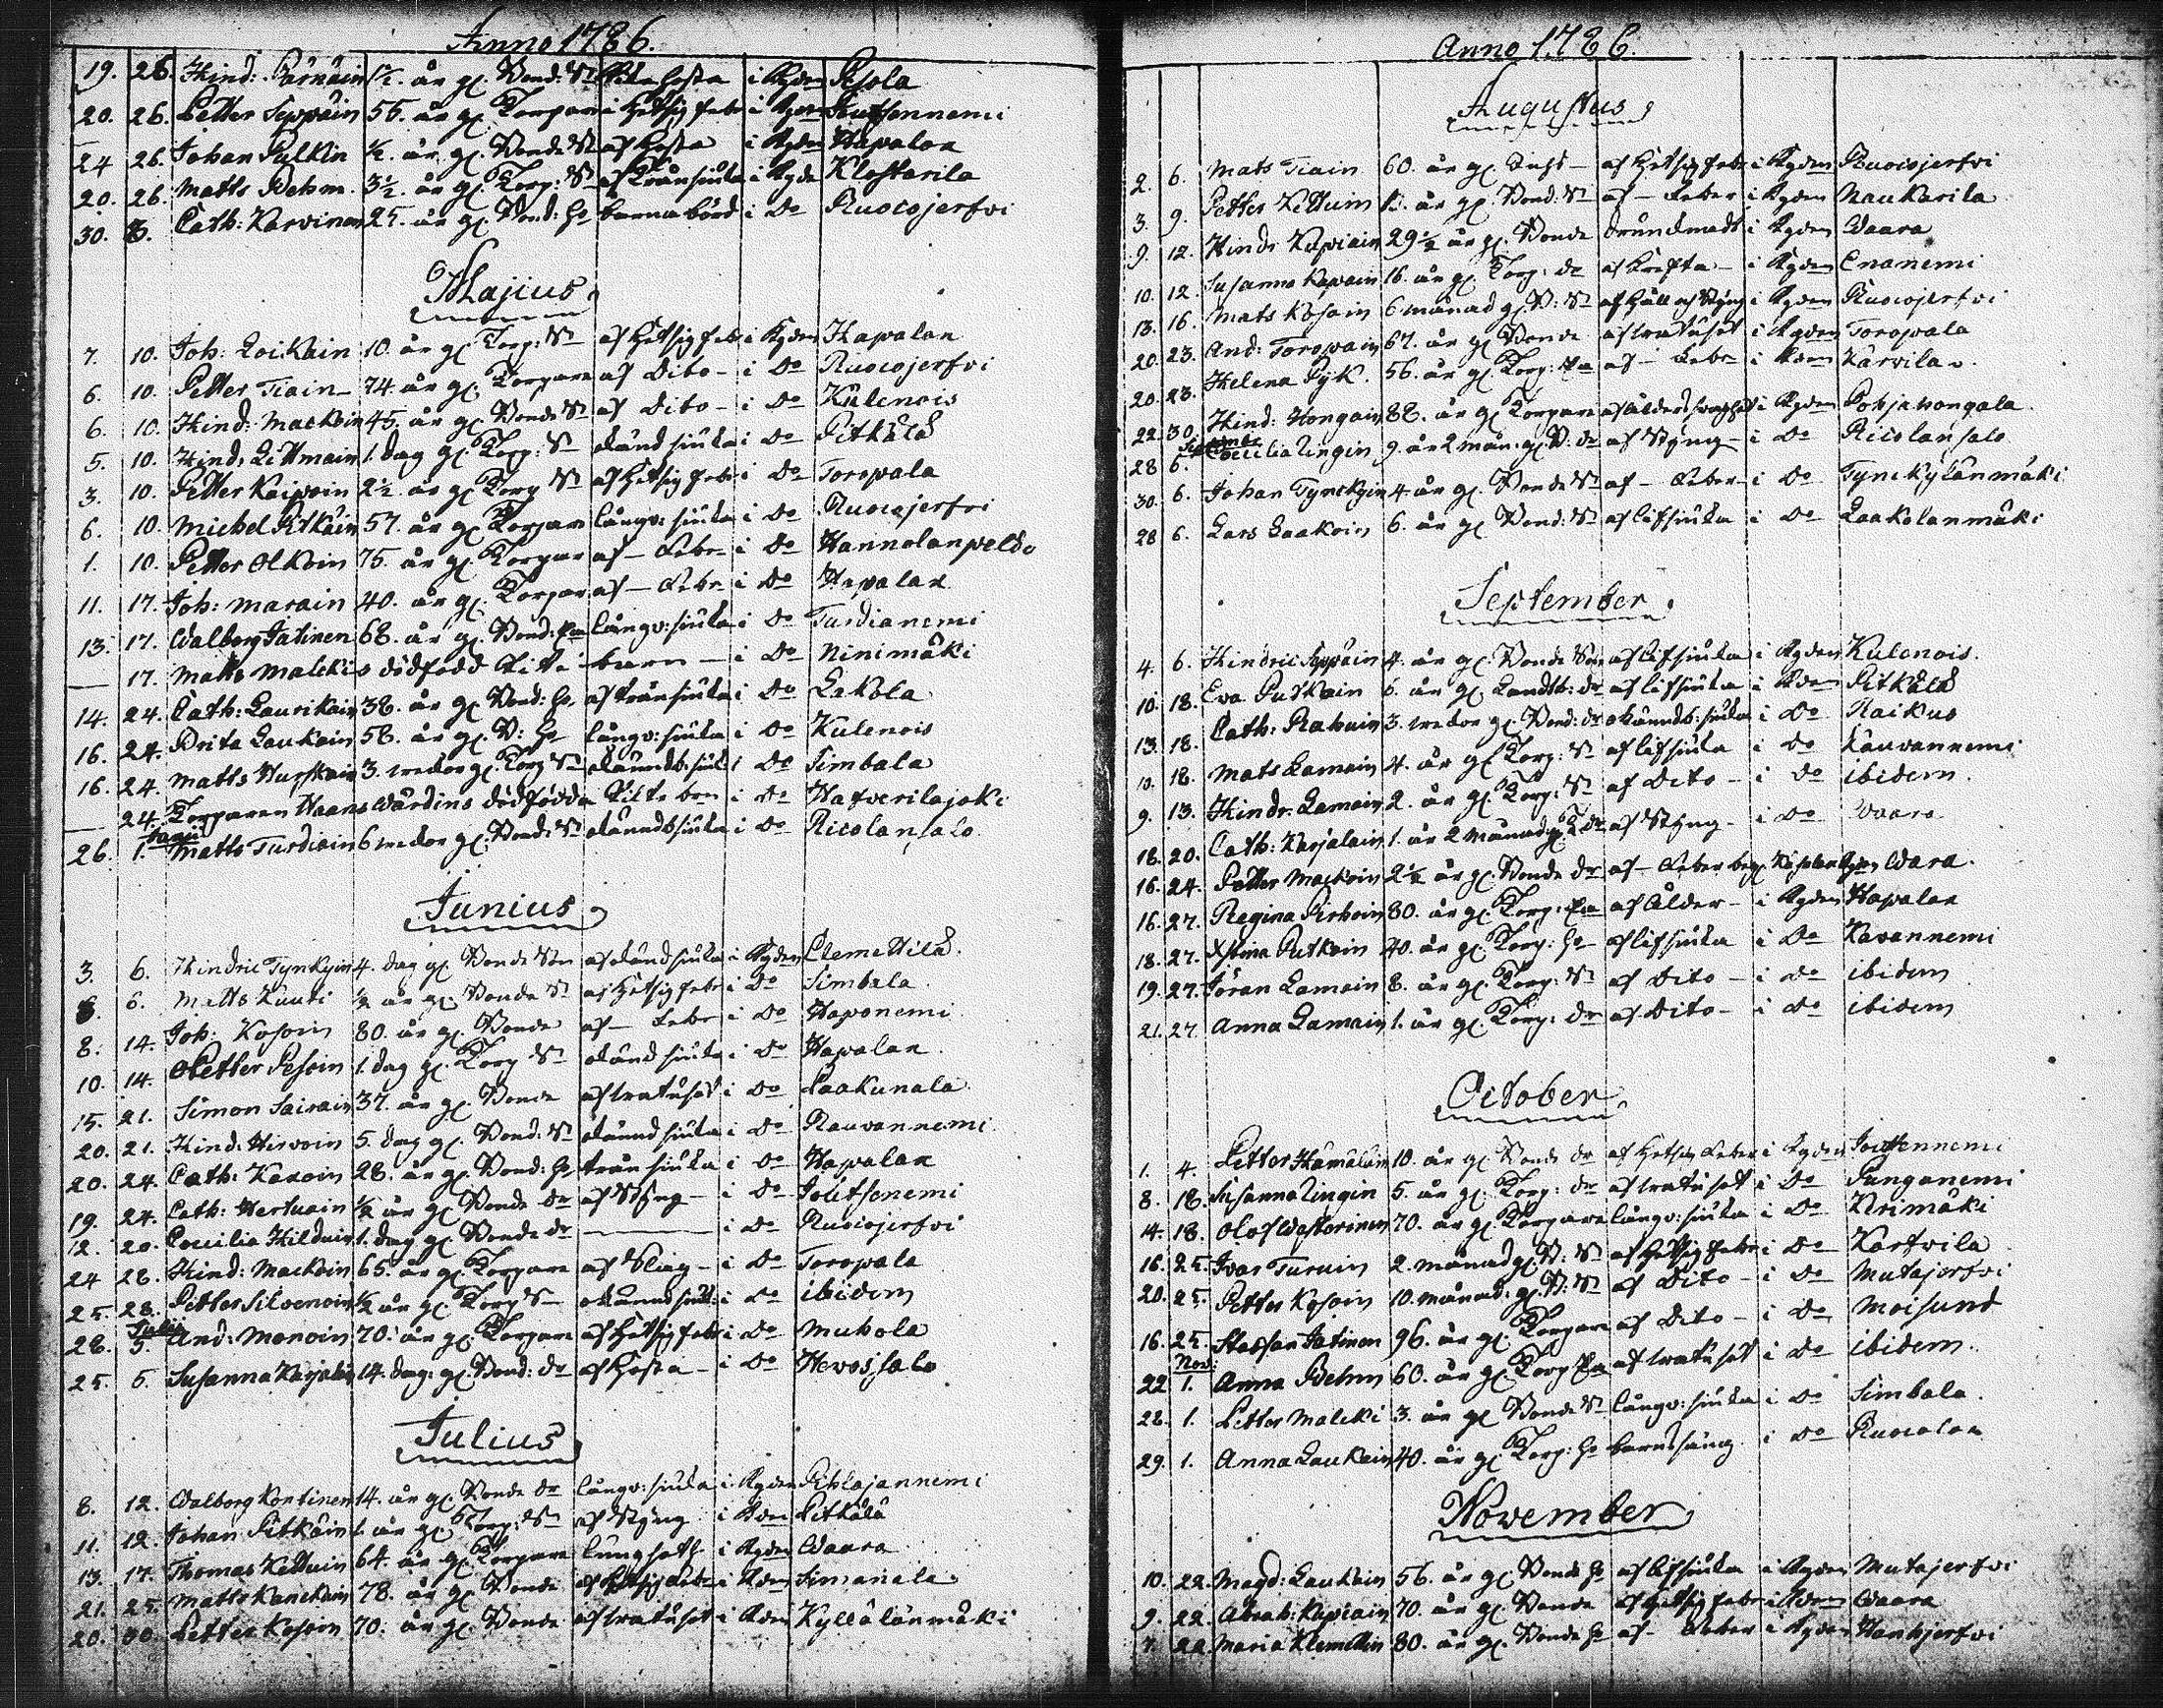 Anno 1786.
19. 26. Hind: Pärnäin ½. år gl. Bond: Sn hosta i Byden Pesola
20. 26. Petter Seppäin 55. år gl. Torpare i hetsig feb: i Byden
24 26. Johan Pulkin ½. år gl. Bonde Sn af hosta i Byden Hapalax
20. 26. Matts Behm. 3½. år gl. Torp: Sn af Tränsiuka i Byde Klostarila
30. 3. Cath: Karvinen 25. år gl. Bond: Ho barnabörd i Do Ruocojerfvi
Majius
7. 10. Joh: Loikain 10. år gl. Torp: Sn af hetsig feb: i Byden Hapalax
6. 10. Petter Tiain 74. år gl. Torpare af Dito i Do Ruocojerfvi
6. 10. Hind: Mackoin 45. år gl. Bonde Sn af Dito i Do Kulenois
5. 10. Hind: Littmain 1. dag gl. Torp: Sn okänd siuka i Do Pitkälä
3. 10. Petter Kaipain 2½. år gl. Torp Sn af hetsig feb: i Do Toropala
6. 10. Michel Pitkäin 57. år gl. Torpare långv: siuka i Do Ruocojerfvi
1. 10. Petter Olkoin 75. år gl. Torpar af Feb: i Do Hannolanpeldo
11. 17. Joh: Marain 40. år gl. Torpar af Feb: i Do Hapalax
13. 17. Walborg Jatinen 68. år gl. Bond: Ea långv: siuka i Do Turdianemi
17. Matts Maleki s dödfödd barn i Do Ninimäki
14. 24. Cath: Laurikain 38. år gl. Bond: Ho af tränsiuka i Do Lakola
16. 24. Brita Laukain 58. år gl. B: Ho långv: siuka i Do Kulenois
16. 24. Matts Hurskain 3. wekor gl. Torp Sn okänndt: siuk: i Do Simbala
24. Torparen Haans Wardins dödfödda i Do Hatverilajoki
Junii
26. 1. Matts Turdiain 6 wekor gl. Bond: Sn okänndt siuka i Do Ricolansalo
Junius
3. 6. Hindric Tynkyin 4. dag gl. Bonde Son af okänd siuka i Byden Clemettilä
8. 6. Matts Kuuti ½ år gl. Bonde Sn af hetsig feb: i Do Simbala
8. 14. Joh: Kosoin 80. år gl. Bonde af Feb: i Do Haponemi
10. 14. Petter Pesoin 1. dag gl. Torp Sn okänd siuka i Do Hapalax
15. 21. Simon Sairain 37. år gl. Bonde af lratusot i Do Laakunala
20. 21. Hind: Hirvoin 5. dag gl. Bond: Sn okännd siuka i Do Rauvannemi
20. 24. Cath: Karoin 28. år gl. Bond: Ho trän siuka i Do Hapalax
19. 24. Cath: Hertuain ½ år gl. Bonde Dr af Styng i Do Joutsenemi
12. 20. Coecilia Hilduin 1. dag gl. Bonde Dr i Do Ruocojerfvi
24 28. Hind: Mackoin 65. år gl. Torpare af Slag i Do Toropala
25. 28. Petter Silvenoin ½ år gl. Torp Sn okännd siuk: i Do ibidem
Julii
28. 5. And: Monoin 70. år gl. Torpare af hetsig feb: i Do Muhola
25. 6. Susanna Karjalin 14. dag: gl. Bond: Dr af hosta i Do Hevossalo
Julius
8. 12. Walborg Kontinen 14. år gl. Bonde Dr långv: siuka i Byden Pihlajannemi
11. 12. Johan Pitkäin 1. år gl. Torp: Sn af Styng i Bden Pitkälä
13. 17. Thomas Kettuin 64. år gl. Torpare lungsoth i Byden Waara
21. 25. Matts Kanckain 78. år gl. Bonde af hetsig Feb: i Bden Simanala
20. 30. Petter Kosoin 70. år gl. Bonde af lratusot i Bden Kyllälänmäki
Anno 1786.
Augustus
2. 6. Mats Tiain 60. år gl. af hetsig feb: i Byden Ruocojerfvi
3. 9. Petter Kettuin 13. år gl. Bond: Sn af Feber i Byden Naukarila
9. 12. Hindr Kapiain 29½ år gl. Bonde drunknadt i Byden Waara
10. 12. Susanna Kapain 16. år gl. Torp: Dr af Krefta i Byden Enanemi
13. 16. Mats Kosoin 6 månad gl. B: Sn af håll och Styng i Byden Ruocojerfvi
20. 23. And: Toropain 67. år gl. Bonde af lratusot i Byden Toropala
20. 23. Helena Pyk. 56. år gl. Torp: Ea af Feb: i Bden Kärvila
22. 30. Hind: Hongain 88. år gl. Torpare af ålderd: svaghet i Byden Pohjahongala
28 6. Coecilia Zingin 9. år 2 mån: gl. B: Dr af Styng i Do Ricolansalo
30. 6. Johan Tynckyin 4. år gl. Bonde Sn af Feber i Do Tynckylänmäki
28 6. Lars Laakoin 6. år gl. Bond: Sn af lifsiuka i Do Laakolanmäki
September
4. 6. Hindric Seppäin 4. år gl. Bonde Son af lifsiuka i Byden Kulenois.
10. 18. Eva Putkain 6. år gl. Landtb: Dr af lifsiuka i Bden Pitkälä
13. 18. Cath: Rahuin 3. wekor gl. Bond: Dr okänndt: siuka i Do Raikus
10. 18. Mats Lamain 4. år gl. Torp: Sn af lifsiuka i Do Kauvannemi
9. 13. Hindr: Lamain 2. år gl. Torp: Sn af Dito i Do ibidem
18. 20. Cath: Karjalain 1. år 2 månad gl. T: Dr af Styng i Do Waara
16. 24. Petter Mackoin 2½ år gl. Bonde Dr af Feber Wara
16. 27. Regina Pirhoin 80. år gl. Torp: Ea af Ålder i Byden Hapalax
18. 27. Xstina Putkoin 40. år gl. Torp: Ho af lifsiuka i Do Kavannemi
19. 27. Jöran Lamain 8. år gl. Torp: Sn af Dito i Do ibidem
21. 27. Anna Lamain 1. år gl. Torp: Dr af Dito i Do ibidem
October
1. 4. Petter Hämäläin 10. år gl. Bonde Dr af hetsig Feber i Byden Joutsennemi
8. 18. Susanna Zingin 5. år gl. Torp: Dr af lratusot i Do Punganemi
14. 18. Olof Westerinen 70. år gl. Torpare långv: siuka i Do Kerimäki
16. 25. Ivar Turuin 2. månad gl. B: Sn af hetsig feb: i Do Kartvila
20. 25. Petter Kosoin 10. månad: gl. B: Sn af Dito i Do Mutajerfvi
16. 25. Staffan Jatinen 96. år gl. Torpare af Dito i Do Moisund
Nov:
22 1. Anna Behm 60. år gl. Torp Ea af lratusot i Do ibidem.
28. 1. Petter Maleki 3. år gl. Bonde Sn långv: siuka i Do Simbala.
29. 1. Anna Laukain 40. år gl. Torp: Ho barnsäng i Do Ruocolax
November
10. 22. Magd: Laukain 56. år gl. Bonde Ho af lifsiuka i Byden Mutajerfvi
9. 22. Abrah: Kapiain 70. år gl. Bonde af hetsig feb: i Bden Waara
7. 22. Maria Klemettin 80. år gl. Bonde Ho af Feber i Byden Hanhjerfvi